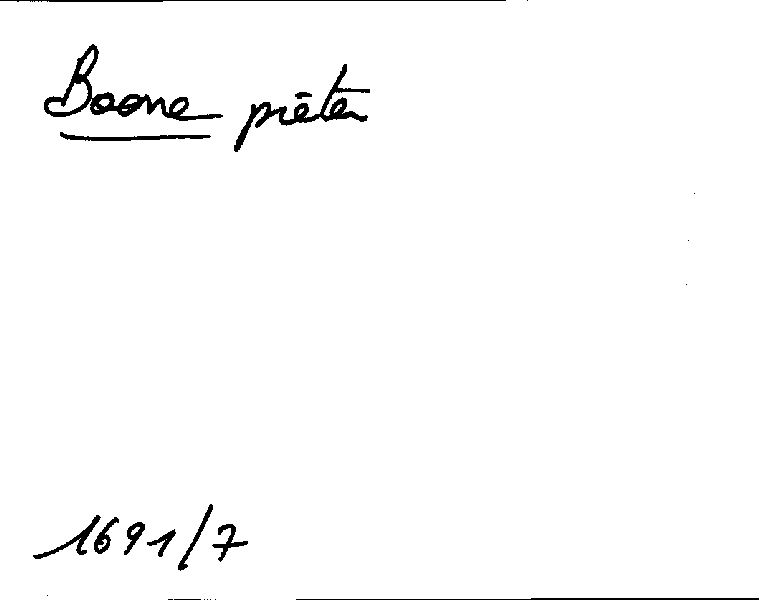 Boone piēter
1691/7